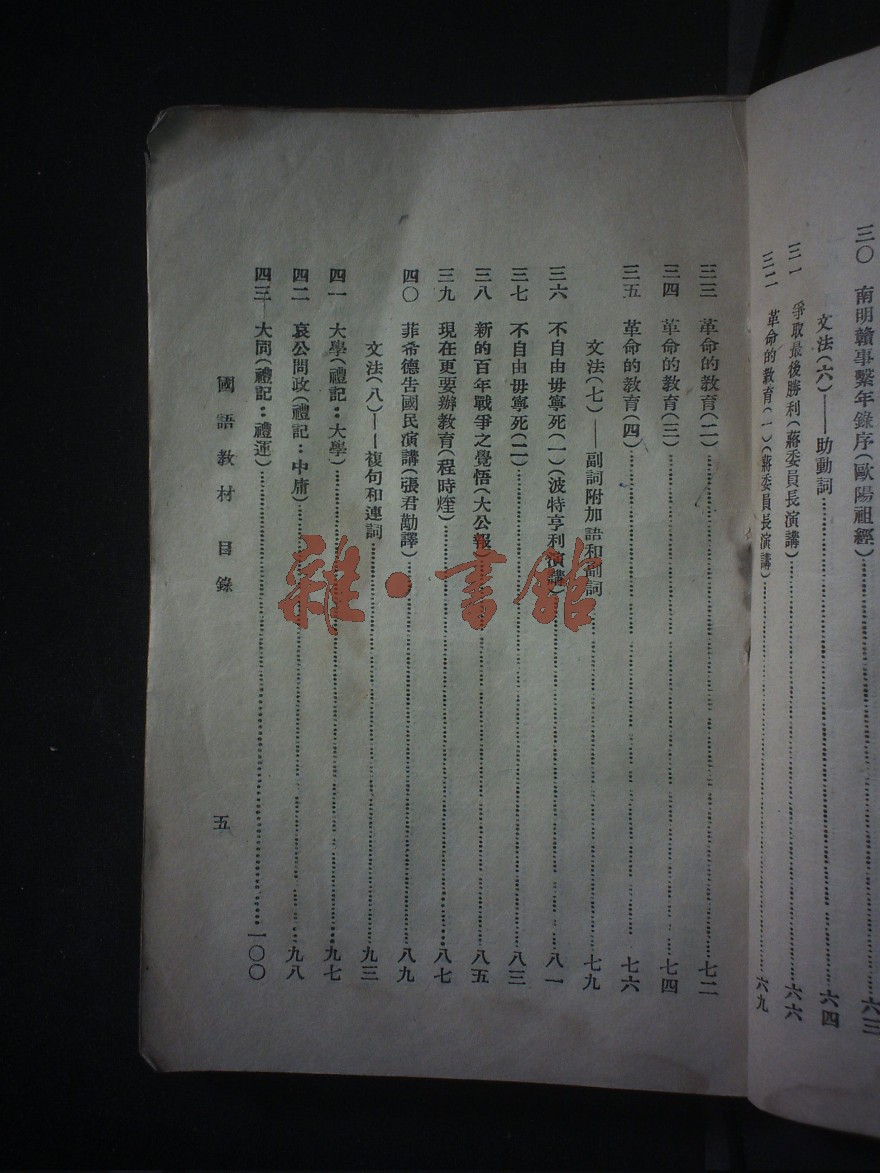 三〇　南明贛事繫年錄序(歐陽祖經)……六三
文法(六)——助動詞……六四
三一　爭取最後勝利(蔣委員長演講)……六六
三二　革命的教育(一)(蔣委員長演講)……六九
三三　革命的教育(二)……七二
三四　革命的教育(三)……七四
三五　革命的教育(四)……七六
文法(七)——副詞附加語和副詞……七九
三六　不自由毋寧死(一)(波特亨利演講)……八一
三七　不自由毋寧死(二)……八三
三八　新的百年戰爭之覺悟(大公報)……八五
三九　現在更要辦教育(程時煃)……八七
四〇　菲希德告國民演講(張君勱譯)……八九
文法(八)——複句和連詞……九三
四一　大學(禮記：大學)……九七
四二　哀公問政(禮記：中庸)……九八
四三　大同(禮記：禮運)……一〇〇
國語教材　目錄　五
雜·書館